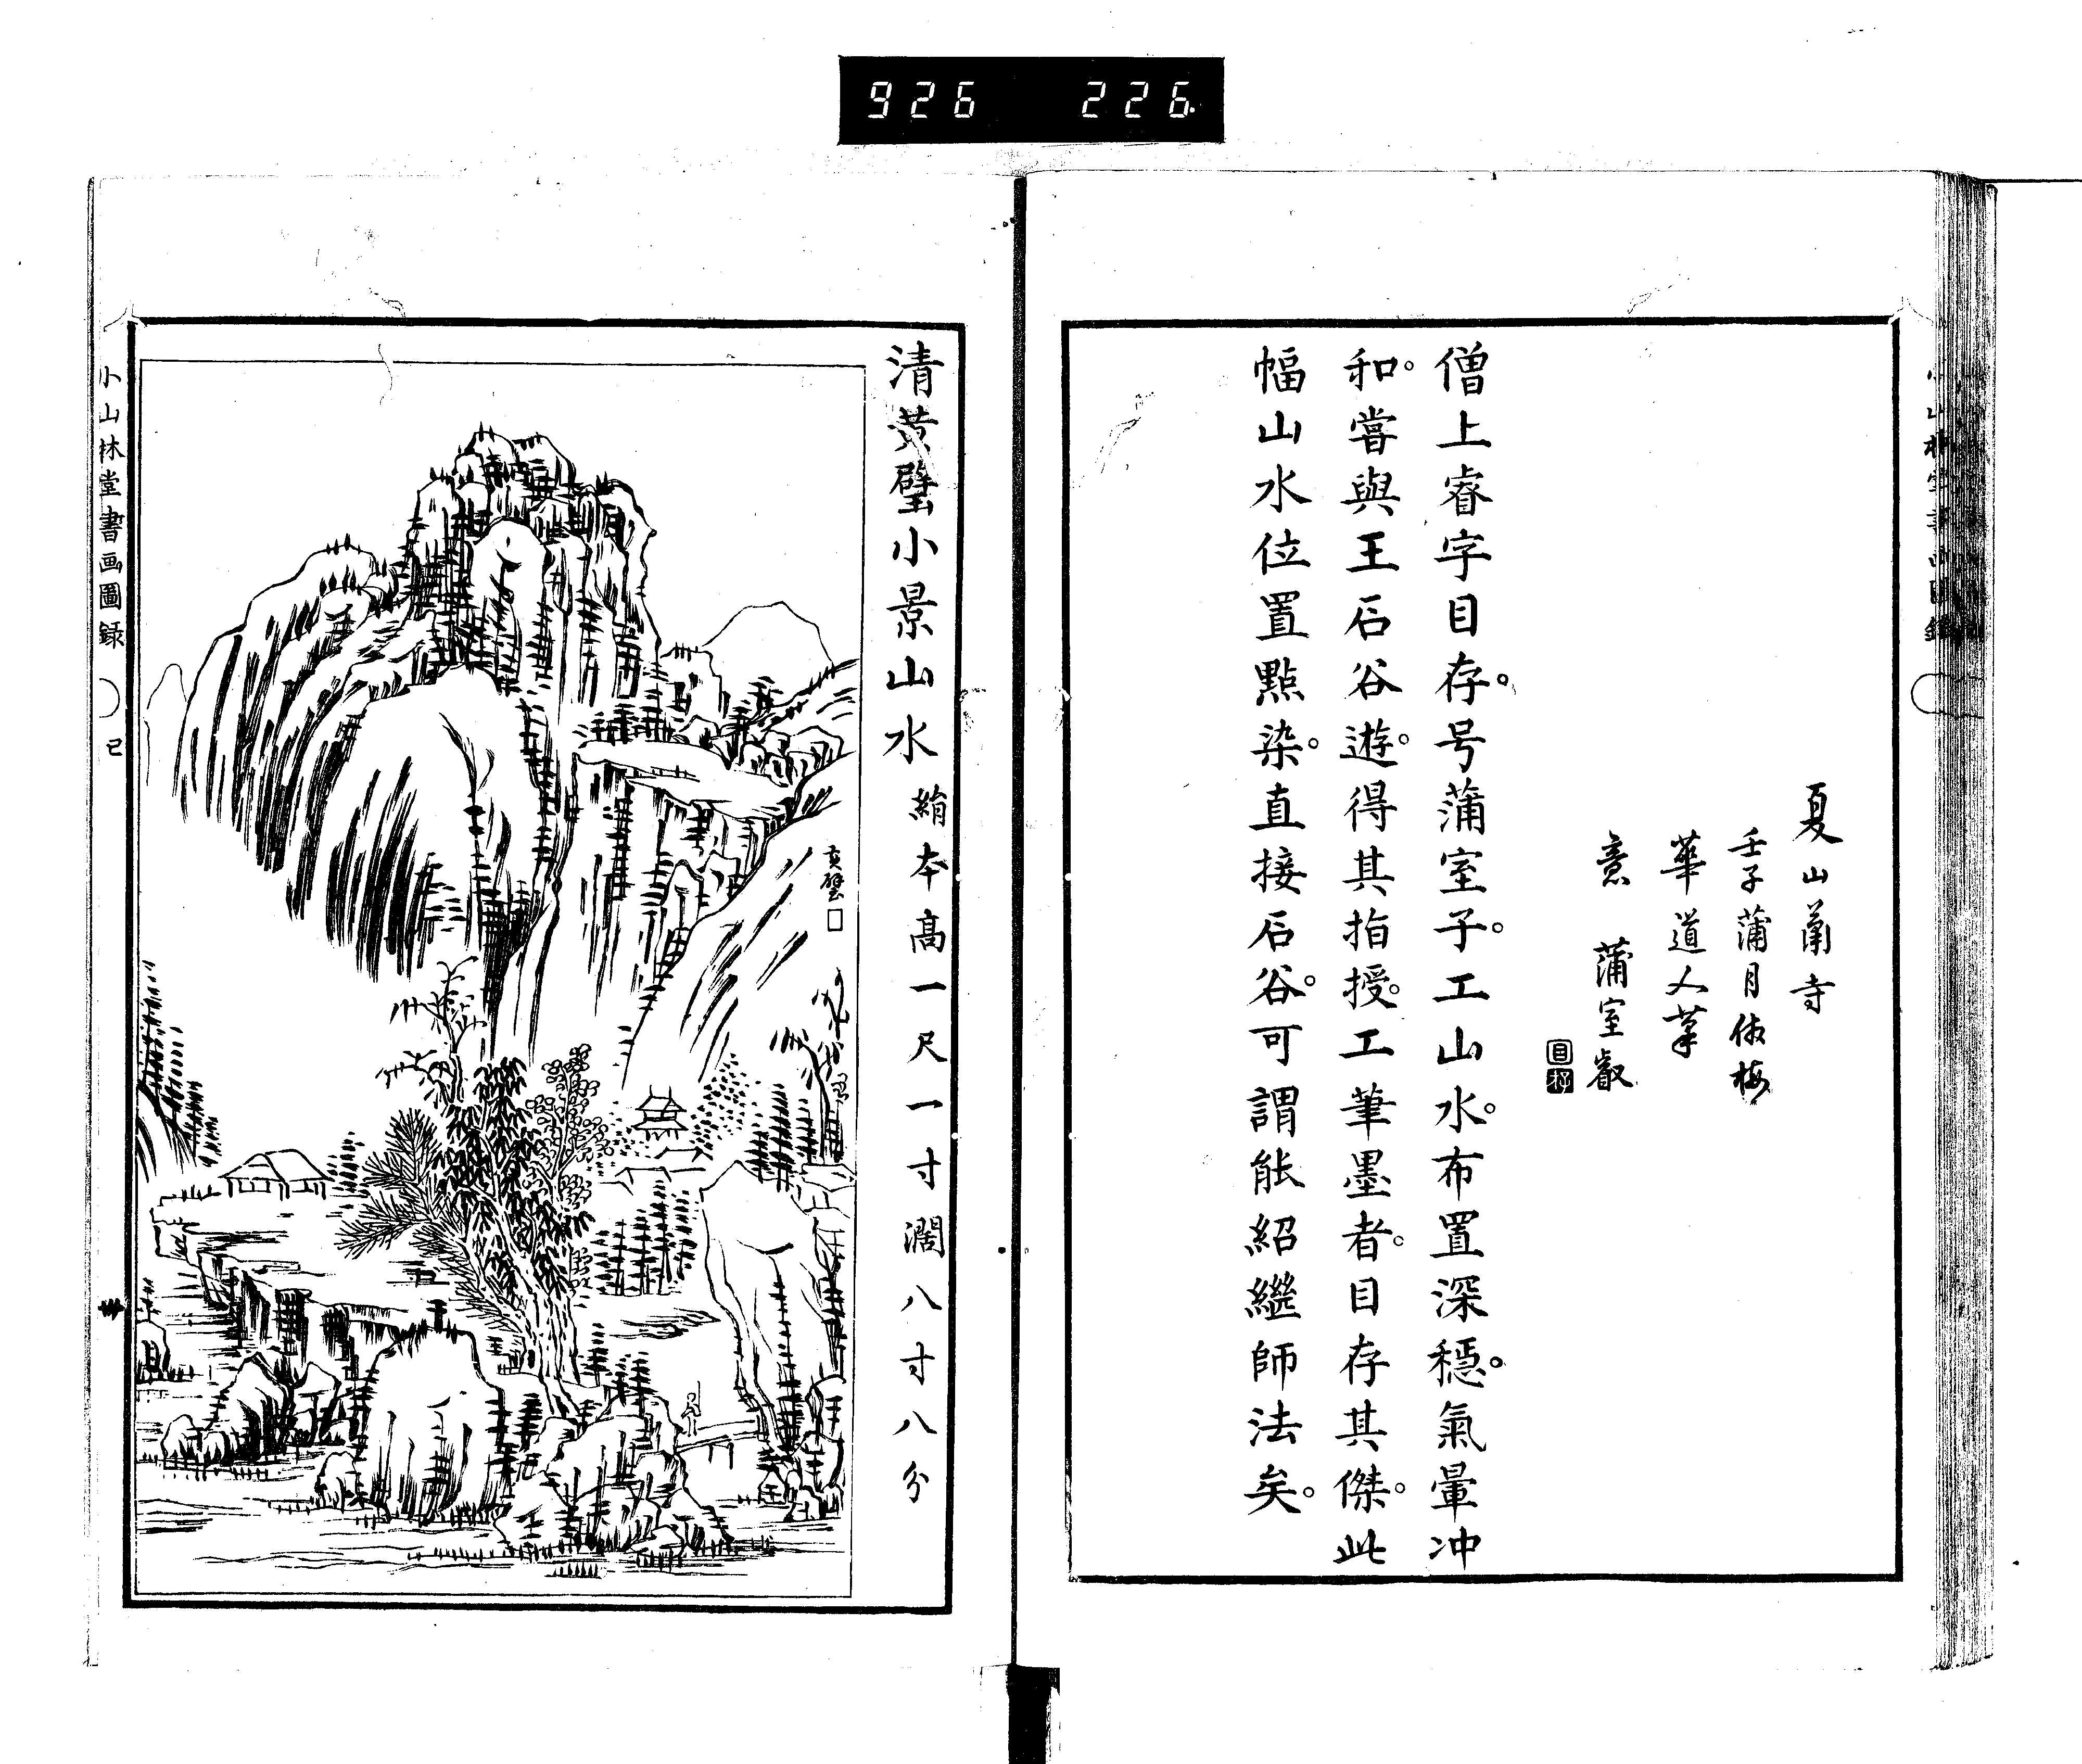 926 226
夏山蘭寺
壬子蒲月倣梅
華道人筆
意 蒲室叡
目存
僧上睿字目存。号蒲室子。工山水。布置深穩。氣暈冲
和。嘗與王石谷遊。得其指授。工筆墨者。目存其傑。此
幅山水位置點染。直接石谷。可謂能紹繼師法矣。
清黄璧小景山水 絹本高一尺一寸濶八寸八分
黄璧
小山林堂書画圖録 己